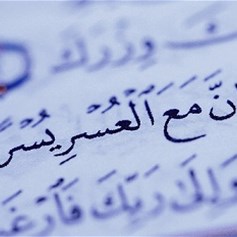 وِزْرَكَ
نَّ مَعَ ٱلْعُسْرِ يُسْرًا
وَإِلَىٰ رَبِّكَ فَٱرْغَب